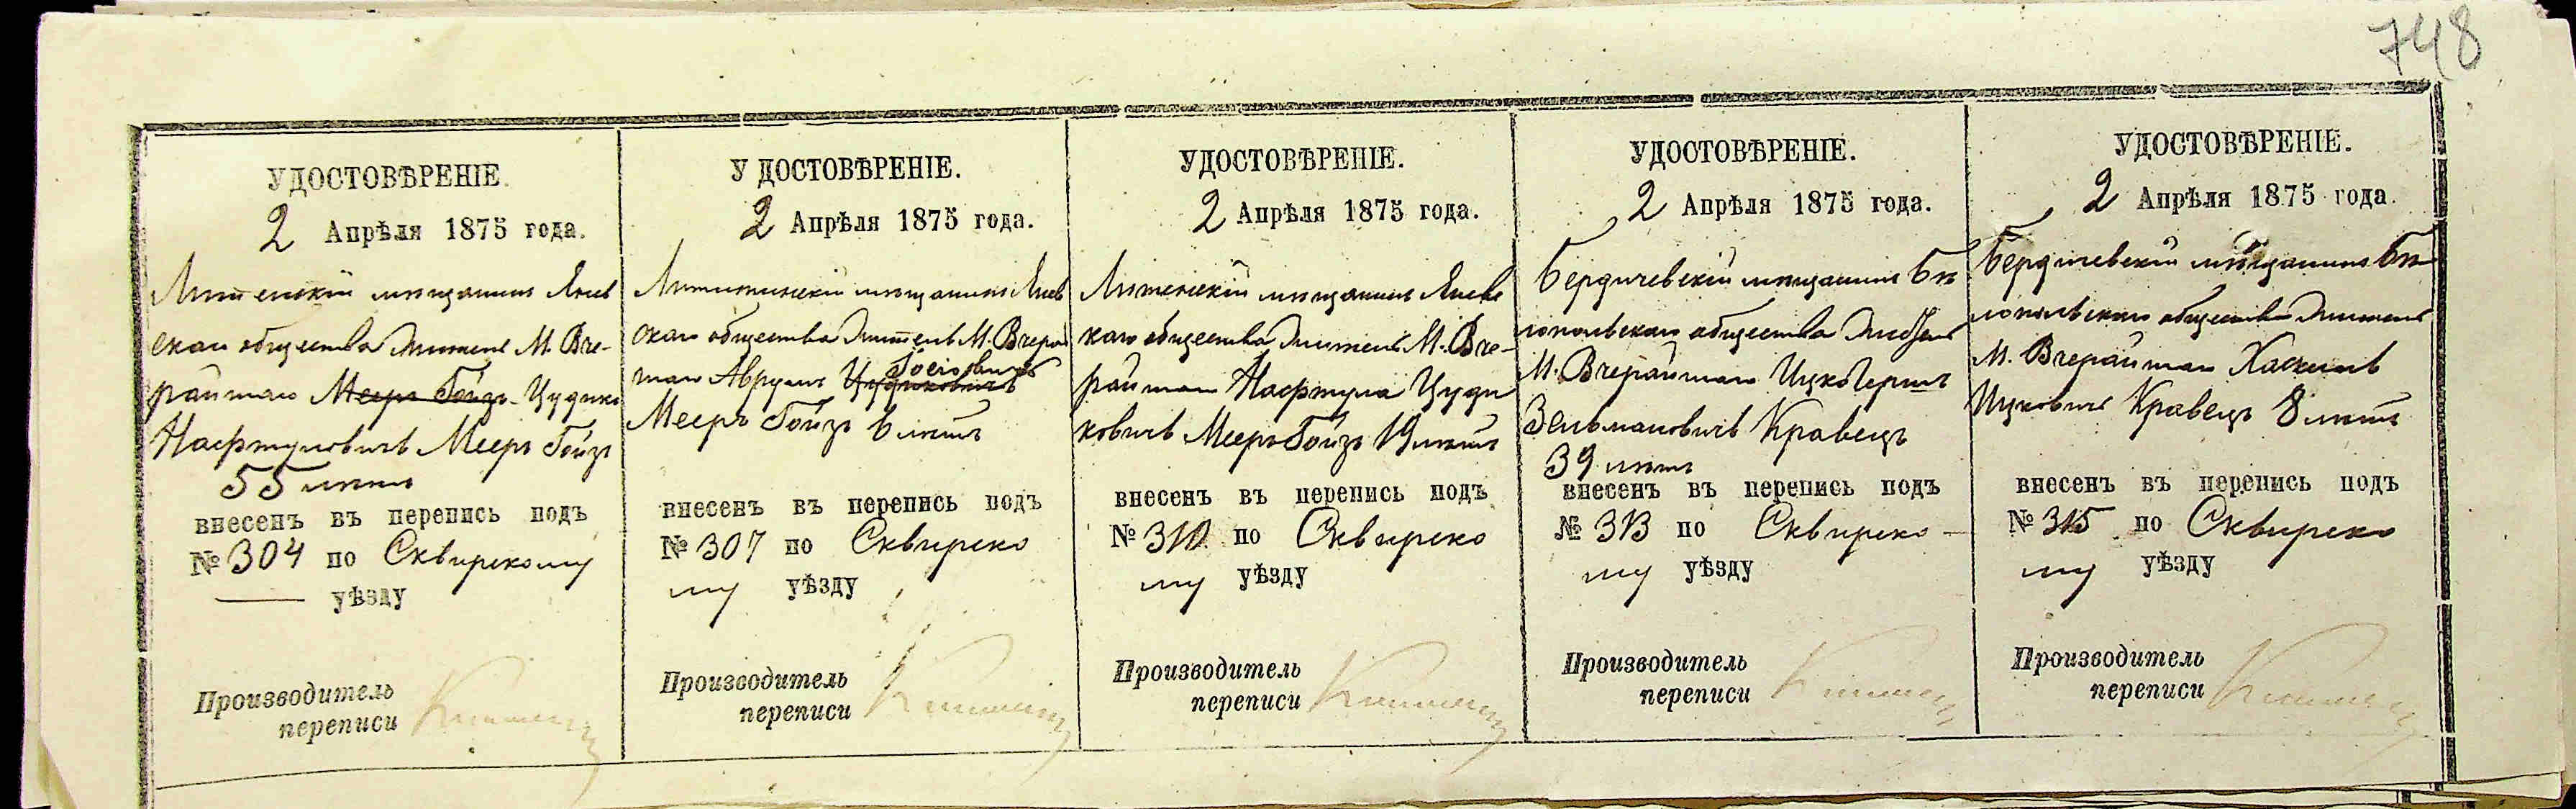 748
УДОСТОВѢРЕНІЕ.
2 Апрѣля 1875 года.
Литинскій мѣщанинъ Янев
скаго общества житель М. Вче-
райшаго Мееръ Гойзъ Цудикъ
Нафтуловичъ Мееръ Гойзъ
55 лѣтъ
внесенъ въ перепись подъ
№ 304 по Сквирскому
уѣзду
Производитель
переписи
У ДОСТОВѢРЕНІЕ.
2 Апрѣля 1875 года.
Литинскій мѣщанинъ Янев
скаго общества житель М. Вчерай
шаго Аврумъ Цудиковичъ
Мееръ Гойзъ 6 лѣтъ
внесенъ въ перепись подъ
№ 307 по Сквирско
му уѣзду
Производитель
переписи
УДОСТОВѢРЕНІЕ.
2 Апрѣля 1875 года.
Литинскій мѣщанинъ Яневс
каго общества житель М. Вче-
райшаго Нафтула Цуди
ковичъ Мееръ Гойзъ 19 лѣтъ
внесенъ въ перепись подъ
№ 310 по Сквирско
му уѣзду
Производитель
переписи
УДОСТОВѢРЕНІЕ.
2 Апрѣля 1875 года.
Бердичевскій мѣщанинъ Бѣ
лопольскаго общества житель
М. Вчерайшаго Ицко Гершъ
Зельмановичъ Кравецъ
39 лѣтъ
внесенъ въ перепись подъ
№ 313 по Сквирско-
му уѣзду
Производитель
переписи
УДОСТОВѢРЕНІЕ.
2 Апрѣля 1875 года.
Бердичевскій мѣщанинъ Бѣ
лопольскаго общества житель
М. Вчерайшаго Хаскель
Ицковичъ Кравецъ 8 лѣтъ
внесенъ въ перепись подъ
№ 315 по Сквирско
му уѣзду
Производитель
переписи